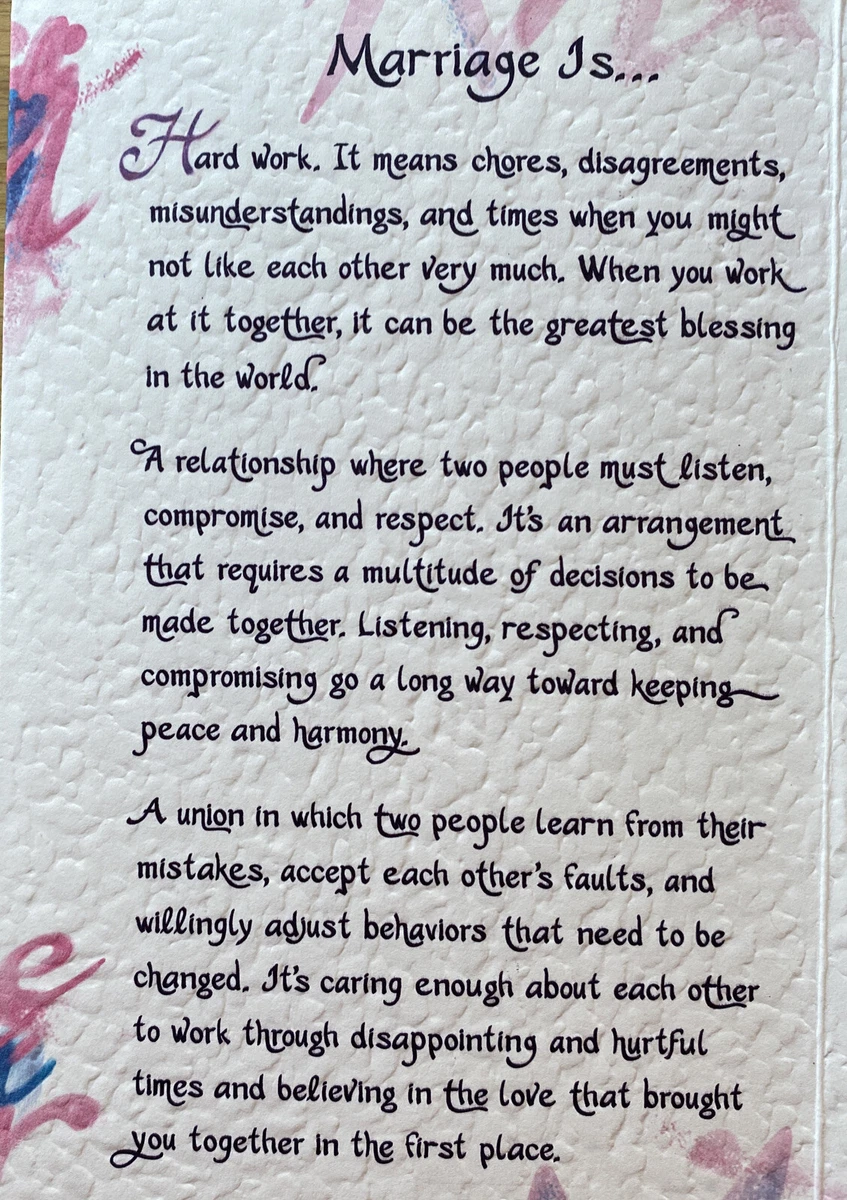 Marriage Is...
Hard work. It means chores, disagreements,
misunderstandings, and times when you might
not like each other very much. When you work
at it together, it can be the greatest blessing
in the world.
A relationship where two people must listen,
compromise, and respect. It's an arrangement
that requires a multitude of decisions to be
made together. Listening, respecting, and
compromising go a long way toward keeping
peace and harmony.
A union in which two people learn from their
mistakes, accept each other's faults, and
willingly adjust behaviors that need to be
changed. It's caring enough about each other
to work through disappointing and hurtful
times and believing in the love that brought
you together in the first place.